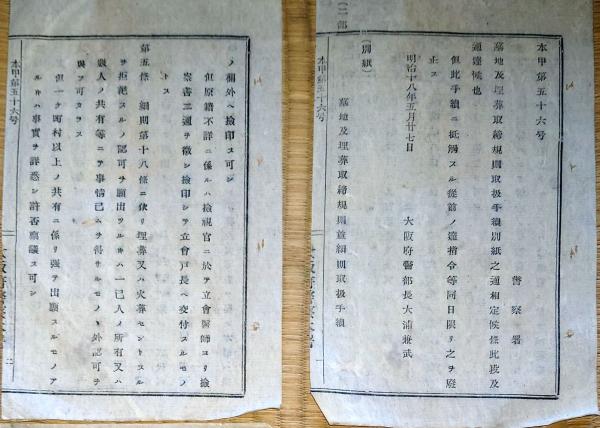 本甲第五十六号
警察署
墓地及埋葬取締規則取扱手續別紙之通相定候條此段及
通達候也
但此手續ニ抵觸スル從前ノ達指令等同日限リ之ヲ廢
止ス
明治十八年五月廿七日
大阪府警部長大浦兼武
(別紙)
墓地及埋葬取締規則並細則取扱手續
本甲第五十六号
一
ノ欄外ヘ檢印ス可シ
但原籍不詳ニ係ルハ檢視官ニ於テ立會醫師ヨリ檢
案書二通ヲ徴シ檢印シテ立會戸長ヘ交付スルモノ
トス
第五條 細則第十八條ニ依リ埋葬又ハ火葬セントスル
ヲ拒ムスルノ認可ヲ願出ツルキハ一己人ノ所有又ハ
數人ノ共有等ニテ事情已ムヲ得サルモノヽ外認可ヲ
與フ可カラス
但一ケ町村以上ノ共有ニ係リ强テ出願スルモノア
ルキハ事實ヲ詳悉シ許否稟議ス可シ
本甲第五十六号
二